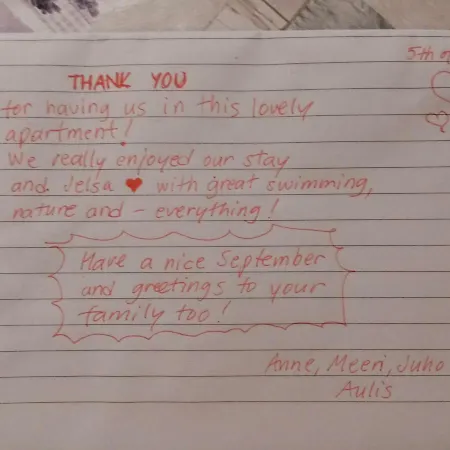 5th of
THANK YOU
for having us in this lovely
apartment!
We really enjoyed our stay
and Jelsa ♥ with great swimming,
nature and - everything!
Have a nice September
and greetings to your
family too!
Anne, Meeri, Juho
Aulis